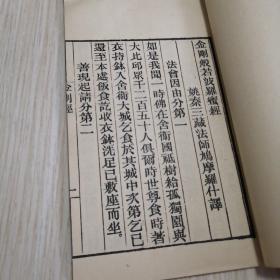 金剛般若波羅蜜經
姚秦三藏法師鳩摩羅什譯
法會因由分第一
如是我聞一時佛在舍衛國祇樹給孤獨園與
大比丘眾千二百五十人俱爾時世尊食時著
衣持鉢入舍衛大城乞食於其城中次第乞已
還至本處飯食訖收衣鉢洗足已敷座而坐
善現起請分第二
金剛經